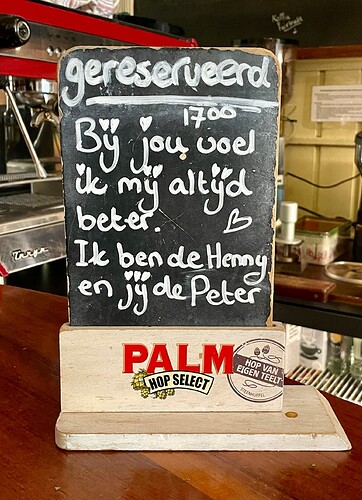 gereserveerd
1700
Bij jou voel
ik mij altijd
beter.
Ik ben de Henny
en jij de Peter
PALM
HOP SELECT
HOP VAN
EIGEN TEELT